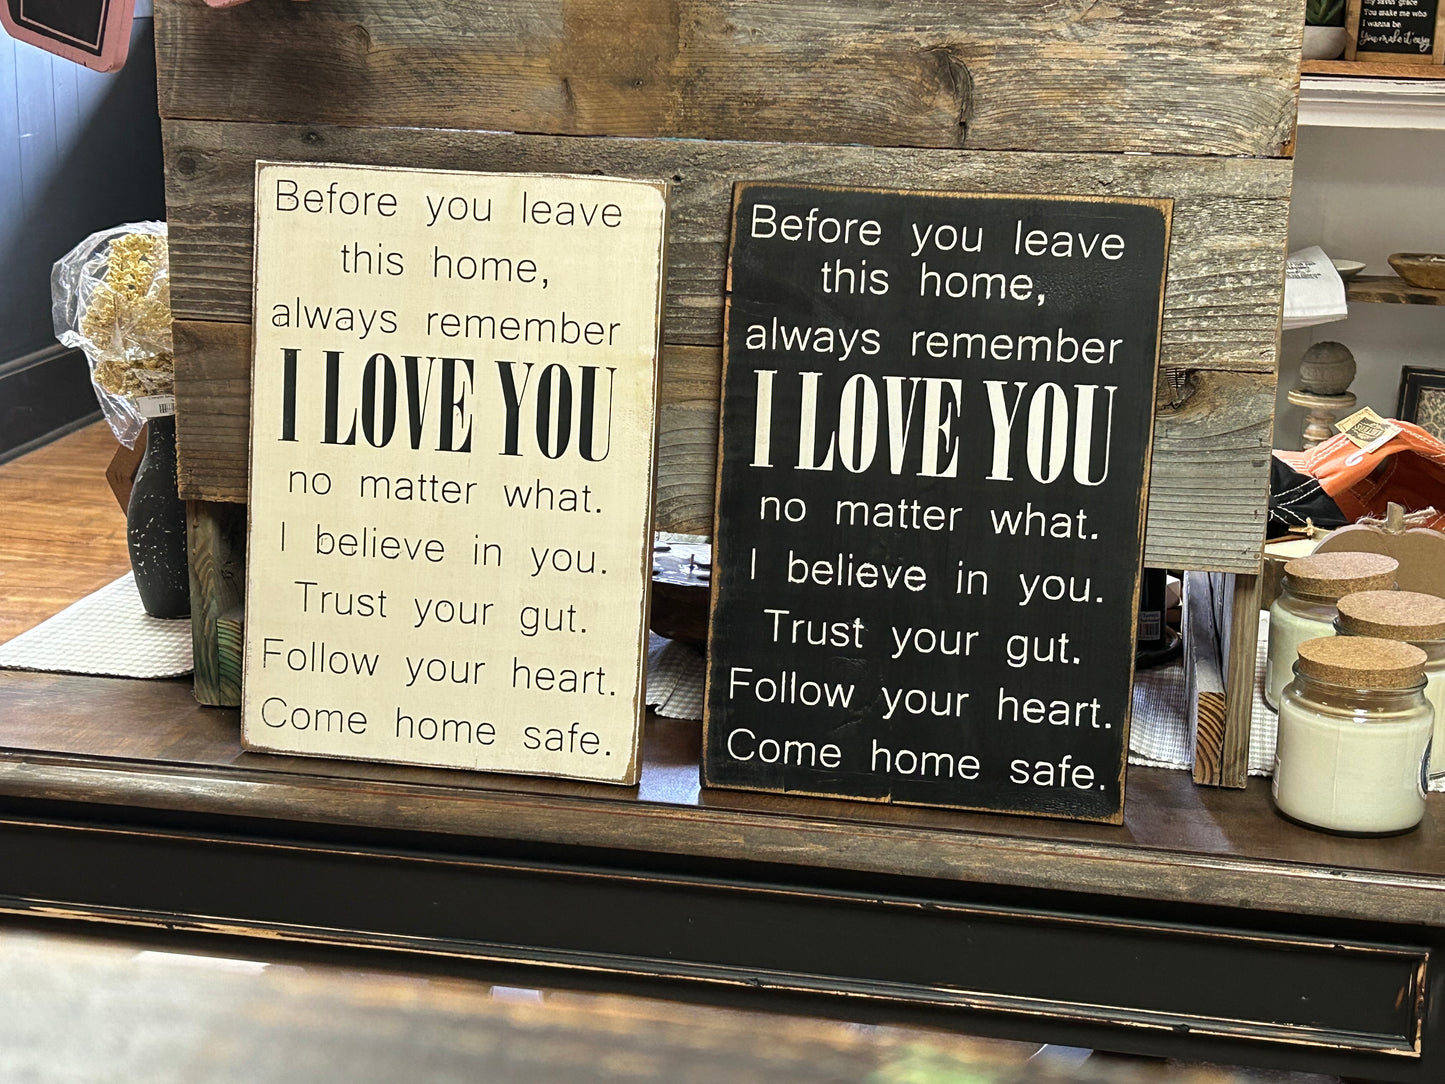 my savin' grace
You make me who
I wanna be
You make it easy
Before you leave
this home,
always remember
I LOVE YOU
no matter what.
I believe in you.
Trust your gut.
Follow your heart.
Come home safe.
Before you leave
this home,
always remember
I LOVE YOU
no matter what.
I believe in you.
Trust your gut.
Follow your heart.
Come home safe.